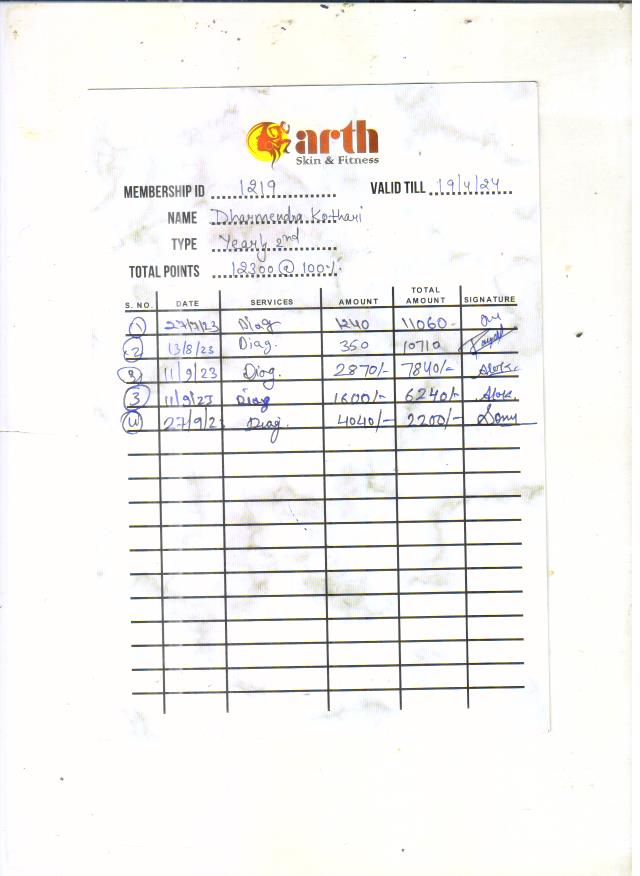 arth
Skin & Fitness
MEMBERSHIP ID 1219 VALID TILL 19/4/24
NAME Dharmendra Kothari
TYPE Yearly 2nd
TOTAL POINTS 12300 @ 100%
S. NO. DATE SERVICES AMOUNT TOTAL AMOUNT SIGNATURE
1 27/7/23 Diag 1240 11060-
2 13/8/23 Diag. 350 10710
3 11/9/23 Diag. 2870/- 7840/- Alok
3 11/9/23 Diag 1600/- 6240/- Alok
4 27/9/23 Diag. 4040/- 2200/- Sonu